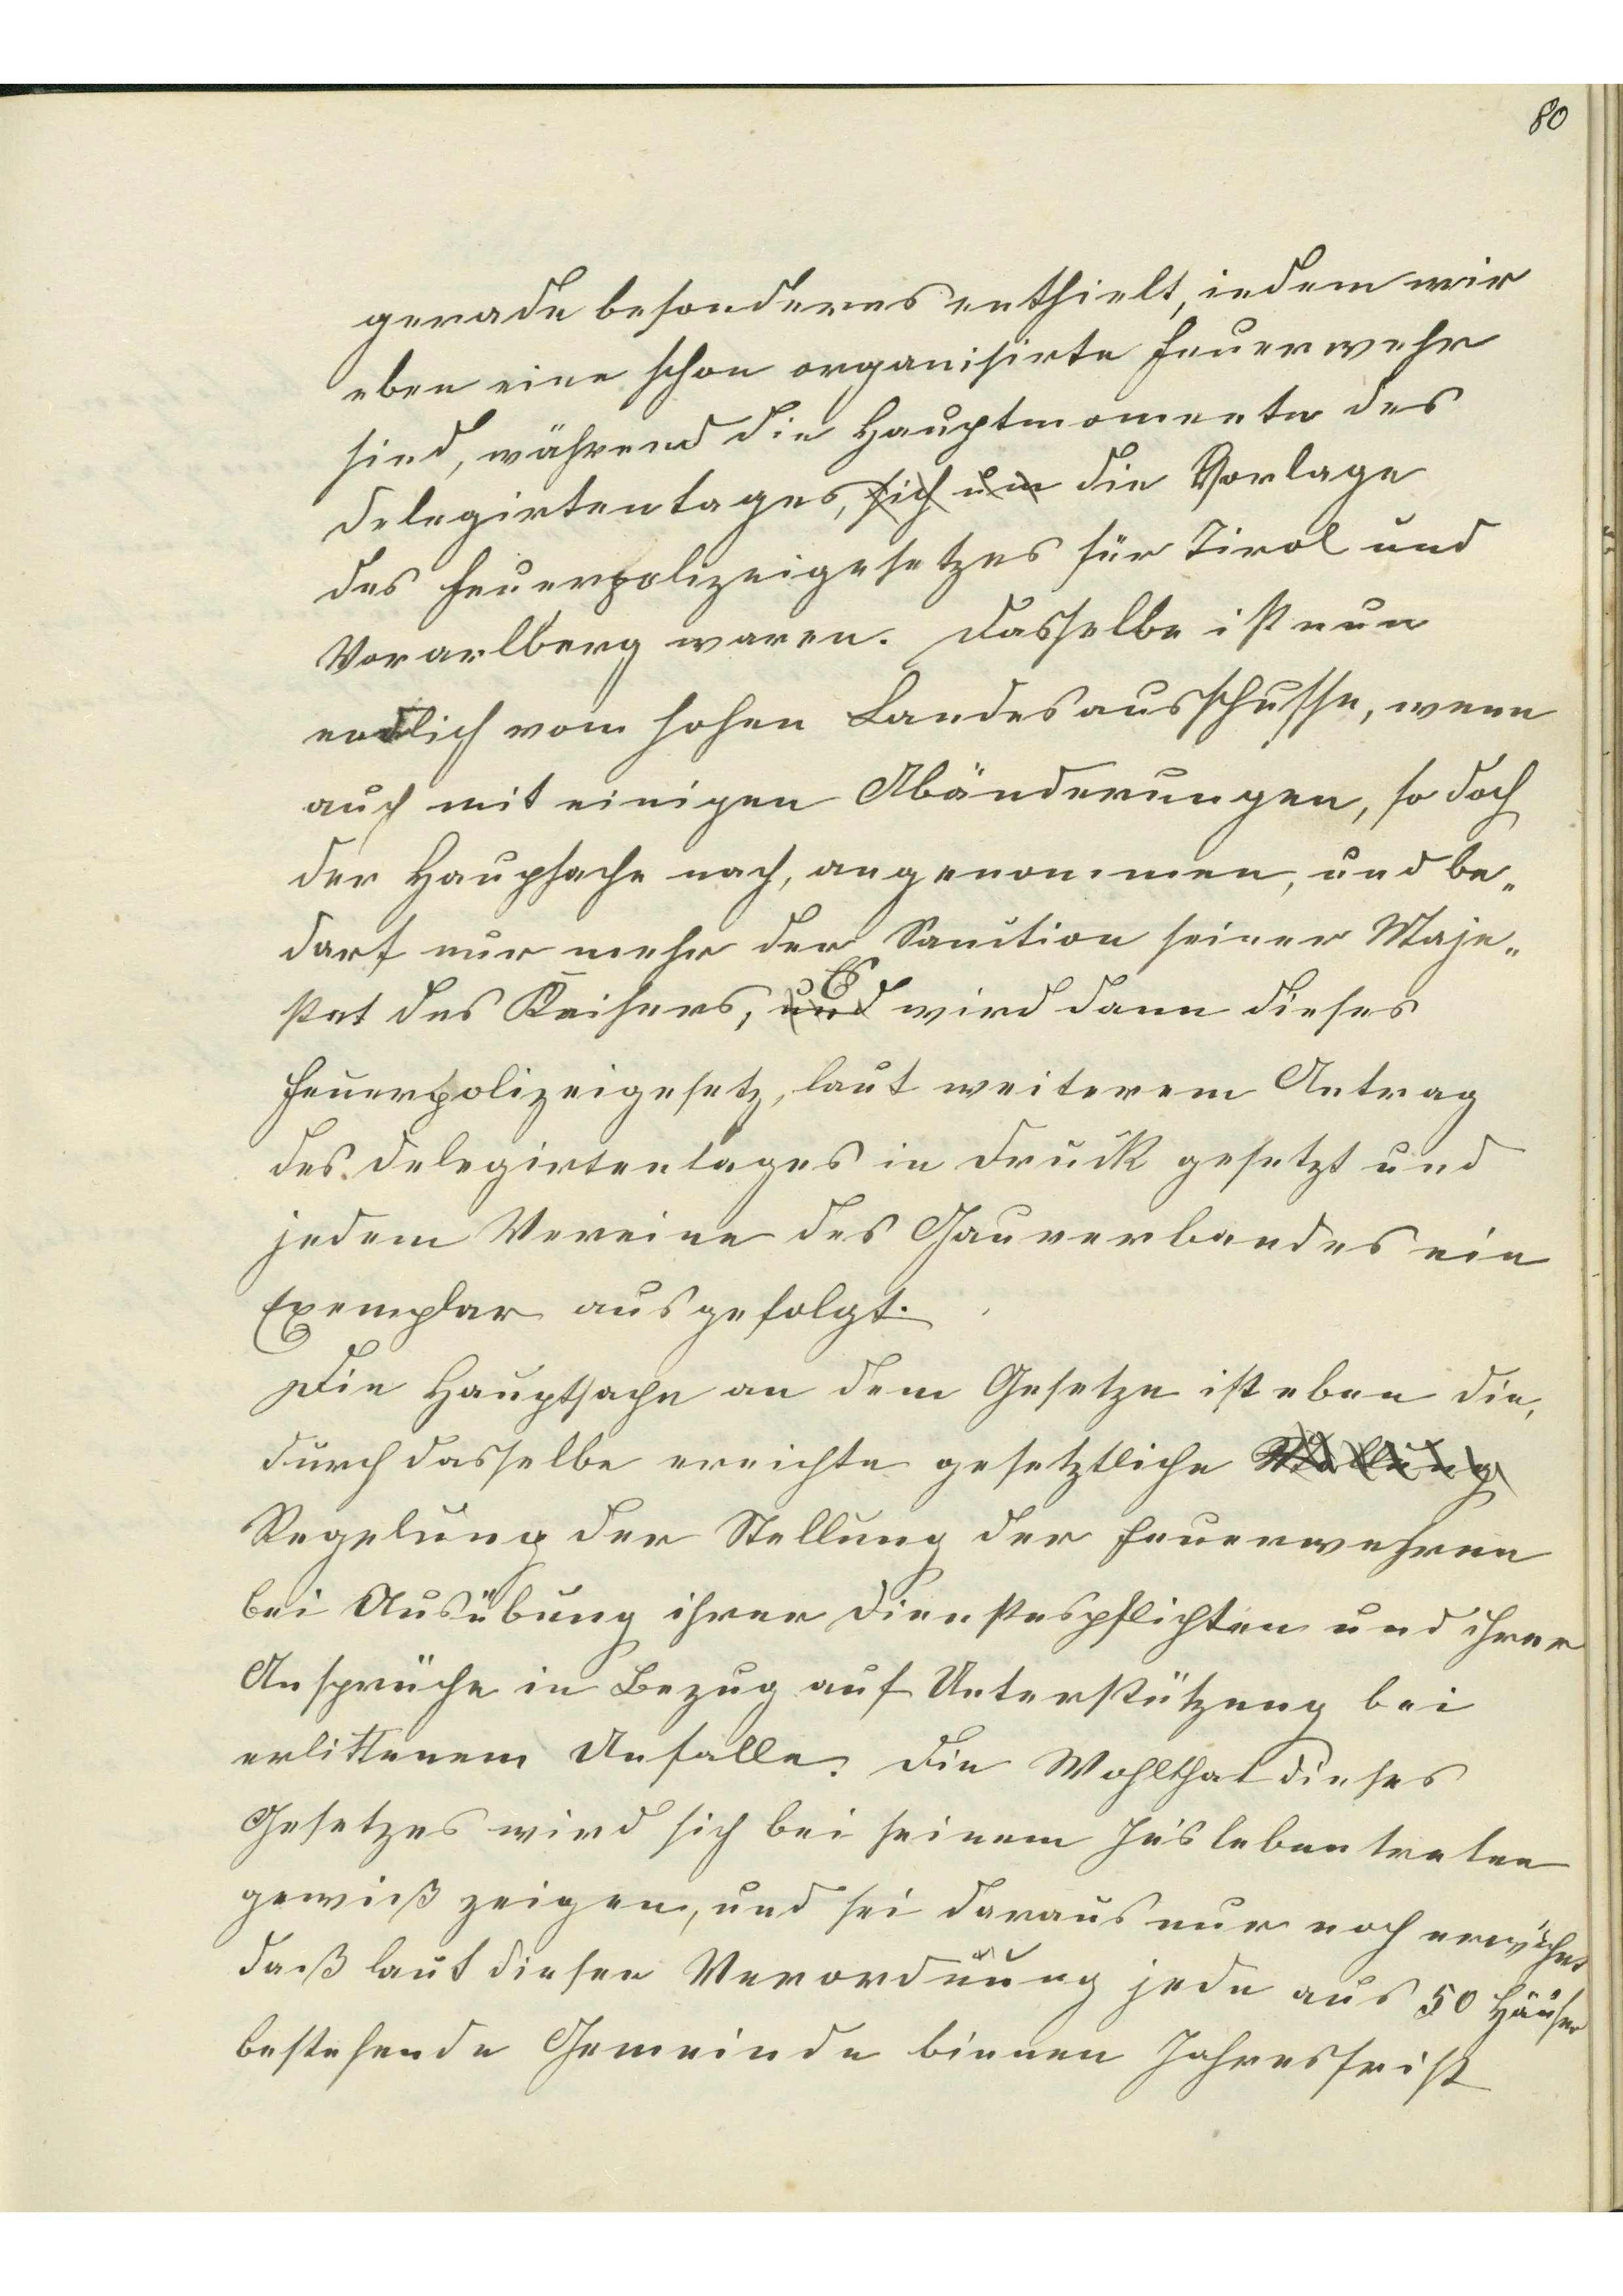 80
gerade besonderes enthielt, indem wir
eben eine schon organisirte Feuerwehr
sind, während die Hauptmomente des
Delegirtentages, sich um die Vorlage
des Feuerpolizeigesetzes für Tirol und
Vorarlberg waren. Dasselbe ist nun
endlich vom hohen Landesausschusse, wenn
auch mit einigen Abänderungen, so doch
der Haupsache nach, angenommen, und be„
darf nur mehr der Sanction seiner Maje„
stet des Kaisers, und Es wird dann dieses
Feuerpolizeigesetz, laut weiterem Antrag
des Delegirtentages in Druck gesetzt und
jedem Vereine des Gauverbandes ein
Exemplar ausgefolgt.
Die Hauptsache an dem Gesetze ist eben die,
durch dasselbe erreichte gesetztliche Stellung
Regelung der Stellung der Feuerwehren
bei Ausübung ihrer Dienstespflichten und ihrer
Ansprüche in Bezug auf Unterstützung bei
erlittenem Unfalle. Die Wohlthat dieses
Gesetzes wird sich bei seinem Inslebentreten
gewiß zeigen, und sei daraus nur noch erwähnt
daß laut diesen Verordnung jede aus 50 Häuser
bestehende Gemeinde binnen Jahresfrist